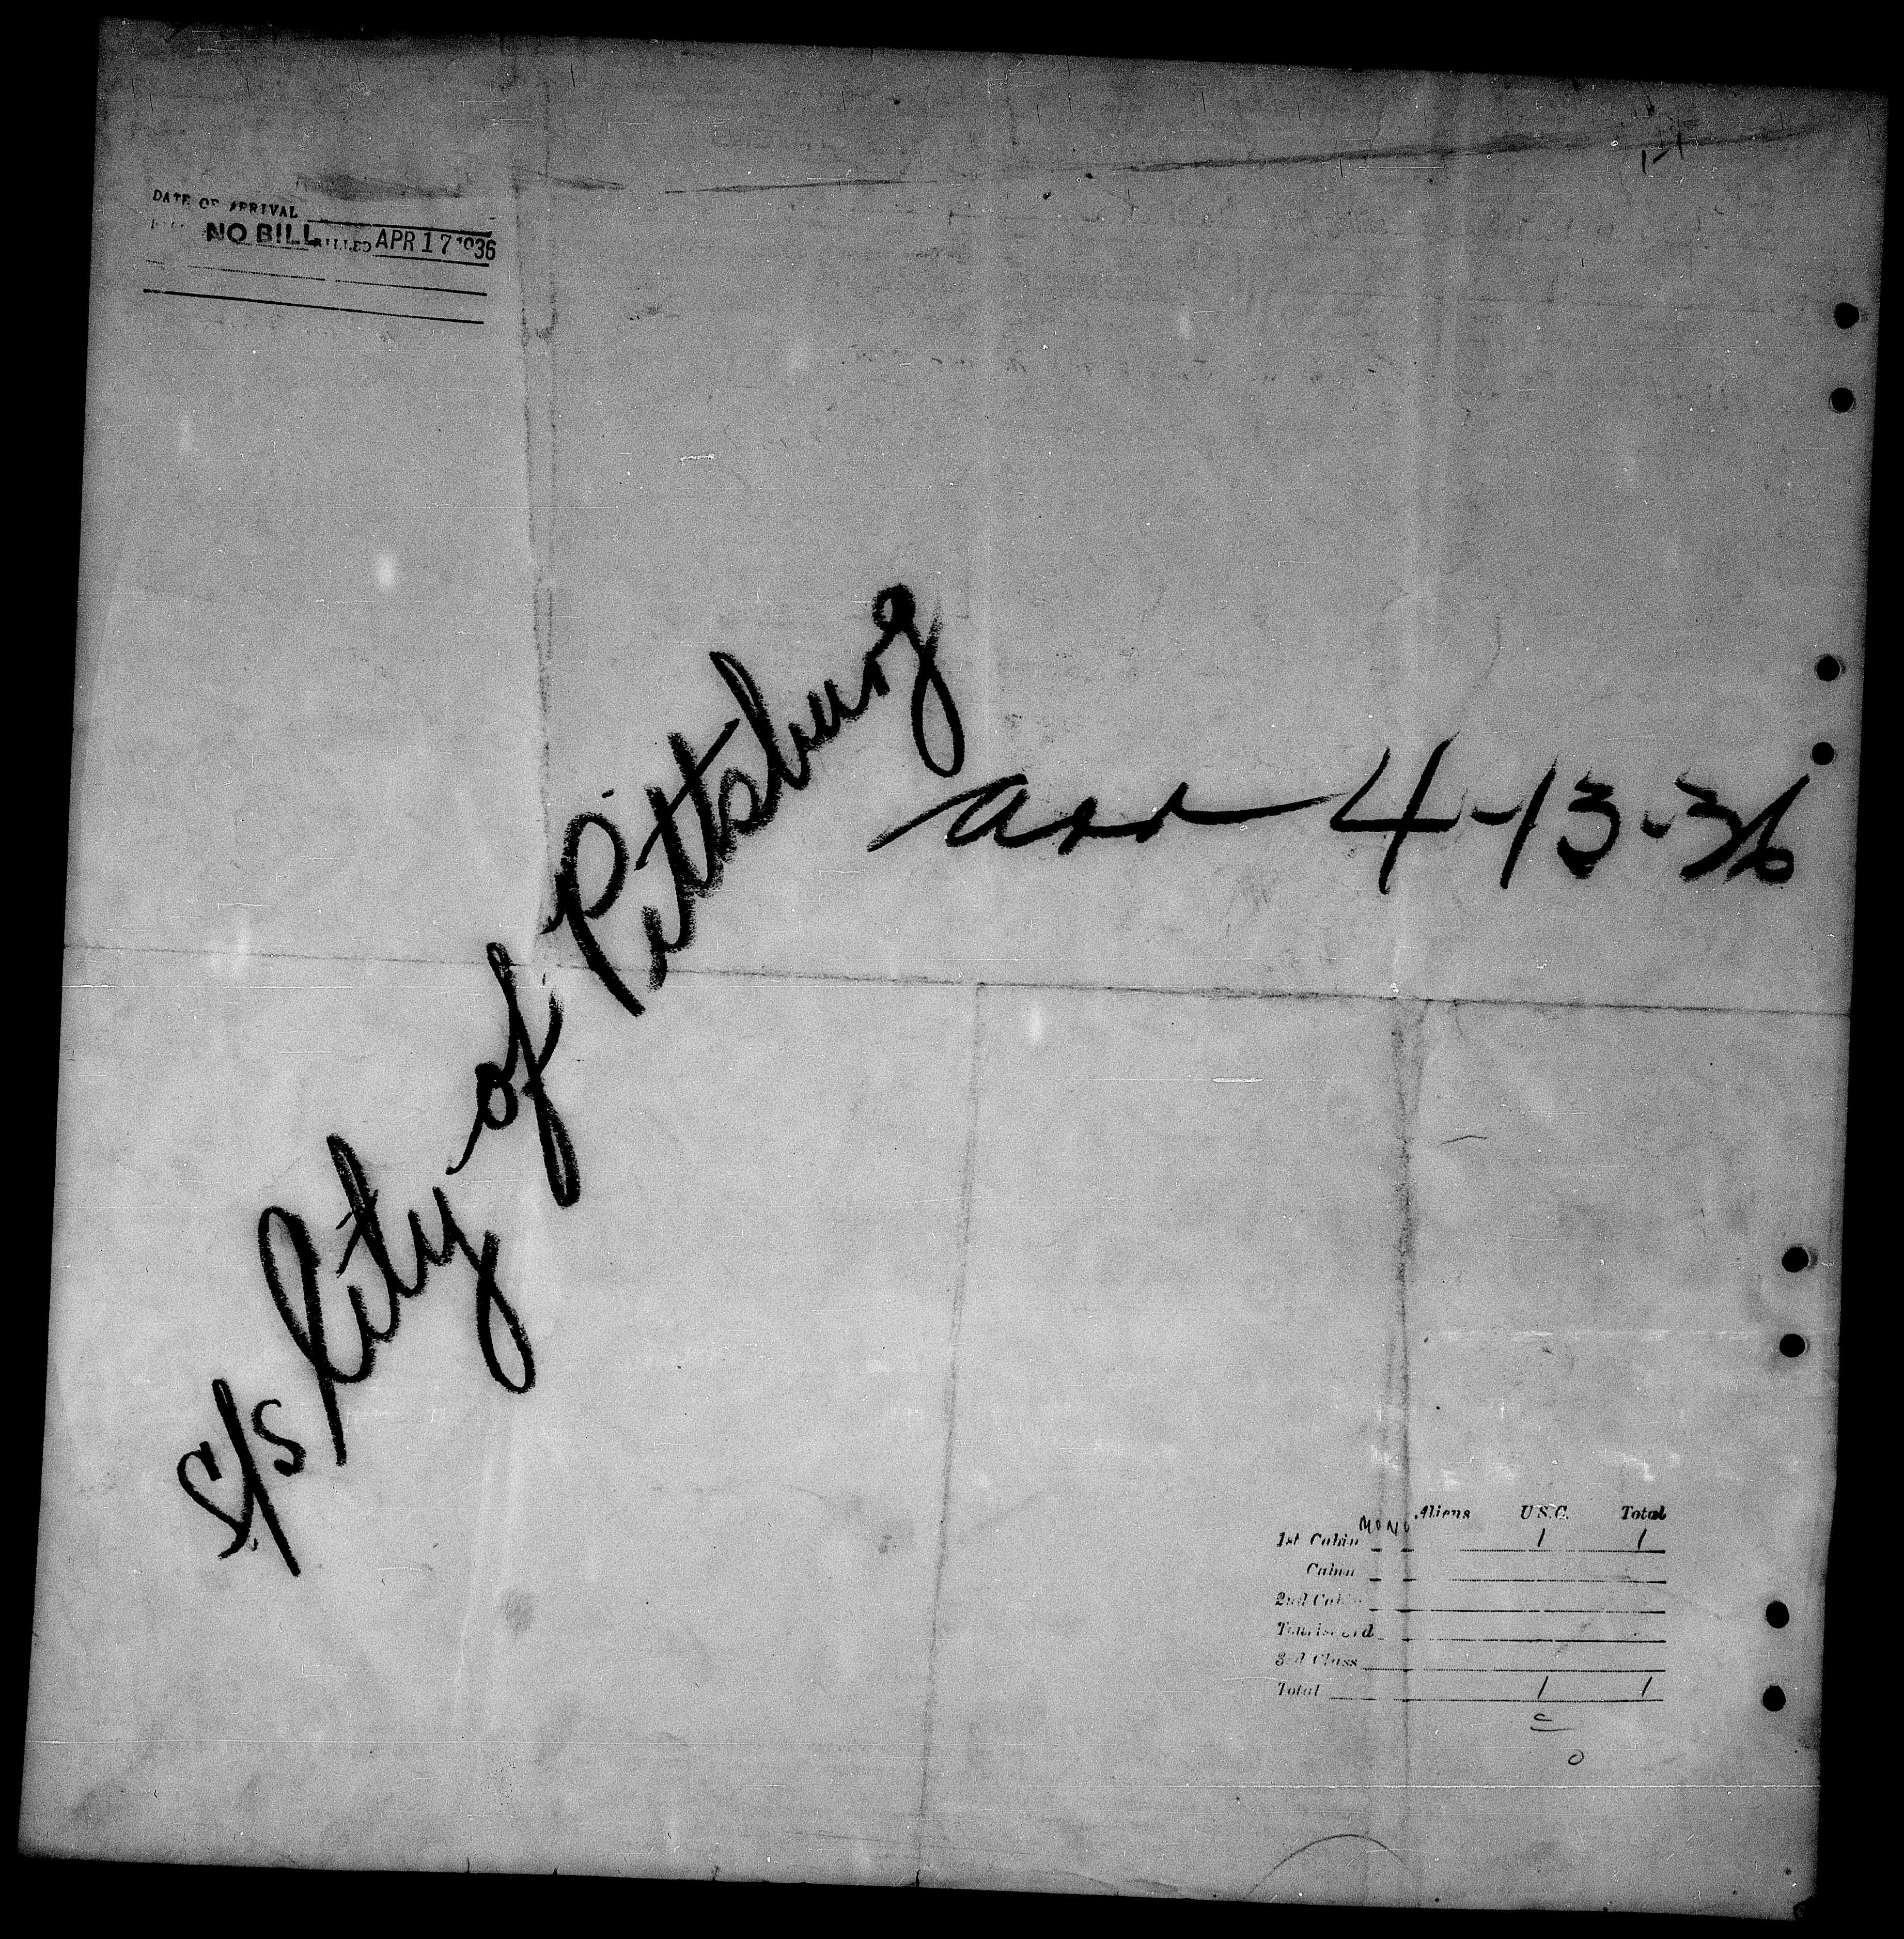 1-1
DATE OF ARRIVAL
NO BILL BILLED APR 17 1936
S/S City of Pittsburg
arr 4-13-36
Aliens U.S.C. Total
1st Cabin 1 1
Cabin
2nd Cabin
Tourist 3rd
3rd Class
Total 1 1
0